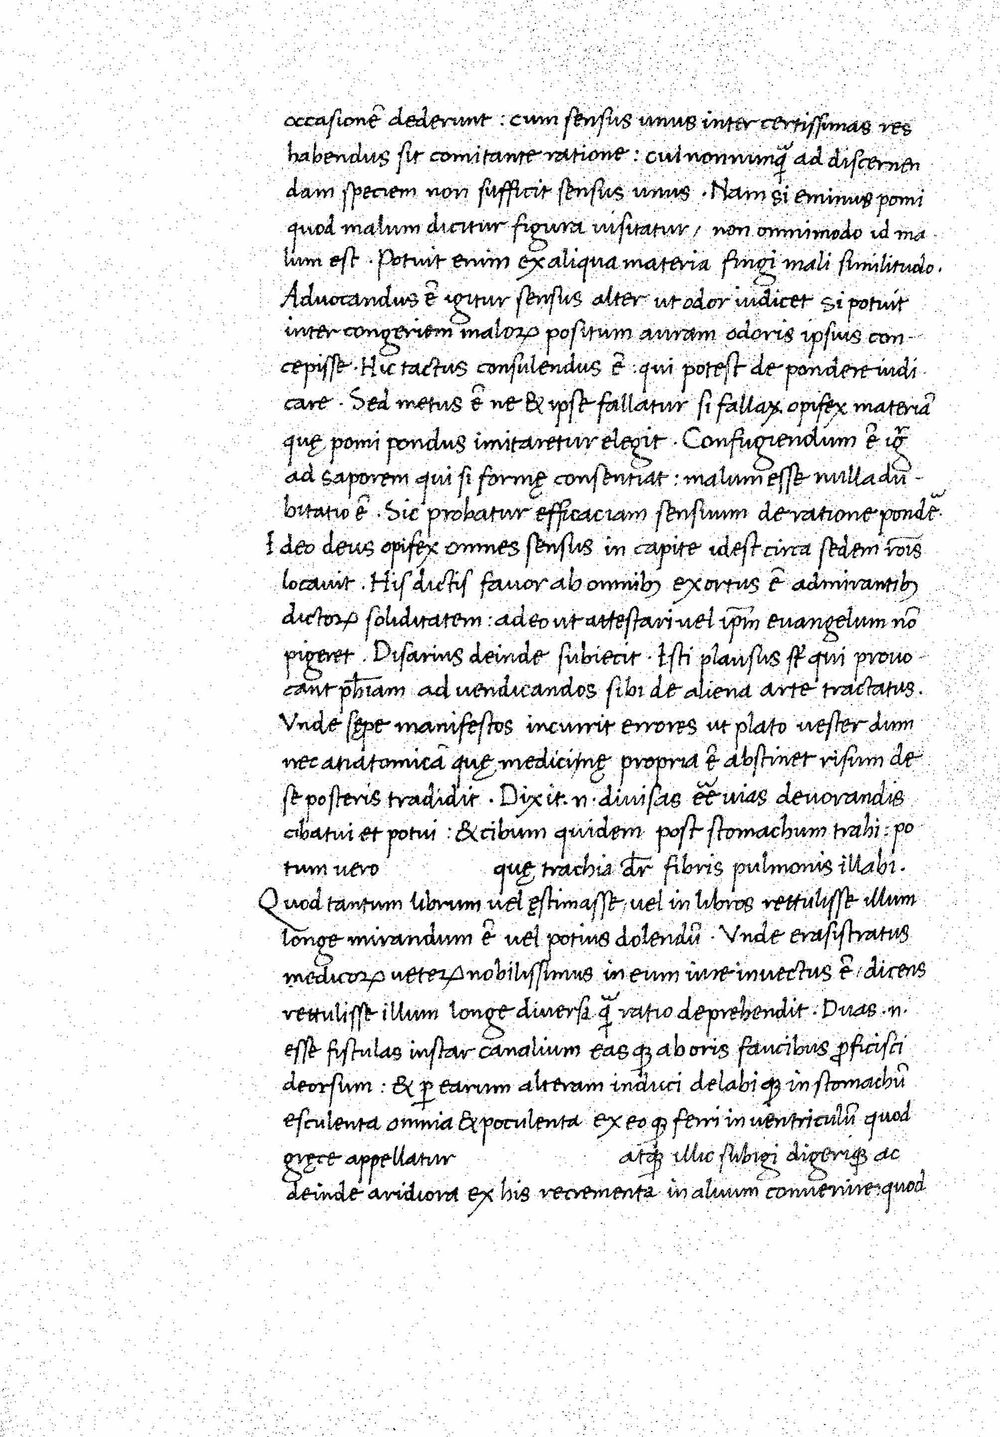 occasionē dederunt : cum sensus unus inter certissimas res
habendus sit comitante ratione : cui nonnunq̄ ad discernen
dam speciem non sufficit sensus unus . Nam si eminus pomi
quod malum dicitur figura uisitatur / non omnimodo id ma
lum est . Potuit enim ex aliqua materia fingi mali similitudo .
Aduocandus ē igitur sensus alter ut odor iudicet si potuit
inter congeriem maloꝝ positum auram odoris ipsius con-
cepisse . Hic tactus consulendus ē : qui potest de pondere iudi
care . Sed metus ē ne & ipse fallatur si fallax opifex materiā
quę pomi pondus imitaretur elegit . Confugiendum ē ig̃
ad saporem qui si formę consentiat : malum esse nulla du -
bitatio ē . Sic probatur efficaciam sensuum de ratione pondē .
Ideo deus opifex omnes sensus in capite idest circa sedem rōis
locauit . His dictis fauor ab omnibꝫ exortus ē admirantibꝫ
dictoꝝ soliditatem : adeo ut attestari uel ip̄m euangelum nō
pigeret . Disarius deinde subiecit . Isti plausus st̄ qui prouo -
cant ph̄iam ad uendicandos sibi de aliena arte tractatus .
Vnde sępe manifestos incurrit errores ut plato uester dum
nec anatomicā quę medicinę propria ē abstinet risum de
se posteris tradidit . Dixit . n . diuisas eē uias deuorandis
cibatui et potui : & cibum quidem post stomachum trahi : po
tum uero quę trachia dr̄ fibris pulmonis illabi .
Quod tantum librum uel ęstimasse / uel in libros rettulisse illum
longe mirandum ē uel potius dolendū . Vnde erasistratus
medicoꝝ ueteꝝ nobilissimus in eum iure inuectus ē / dicens
rettulisse illum longe diuersa q̄ ratio deprehendit . Duas . n .
esse fistulas instar canalium easqꝫ ab oris faucibus ꝓficisci
deorsum : & ꝑ earum alteram induci delabiqꝫ in stomachū
esculenta omnia & poculenta ex eoqꝫ ferri in uentriculū quod
gręce appellatur atqꝫ illic subigi digeriqꝫ ac
deinde aridiora ex his recrementa in aluum conuenire : quod